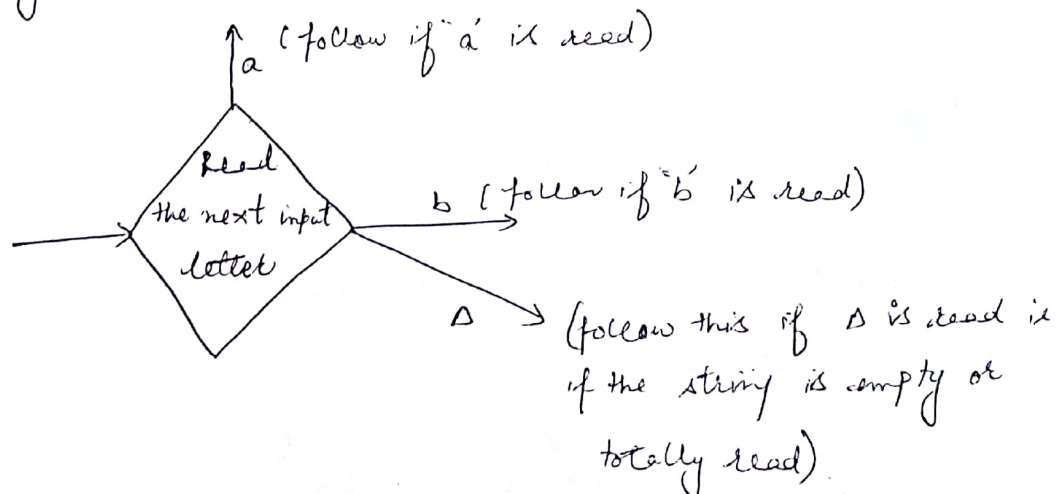 a (follow if "a" is read)
Read
the next input
letter
b (follow if "b" is read)
Δ
(follow this if Δ is read ie
if the string is empty or
totally read)